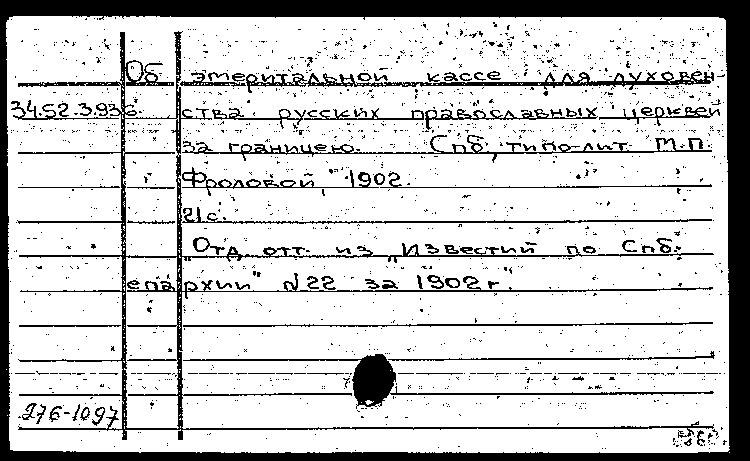 Об эмеритальной кассе для духовен-
34.52.3.93б. ства русских православных церквей
за границею. Спб, типо-лит М.П.
Фроловой, 1902.
21с.
"Отд отт. из "Известий по Спб.
епархии" N22 за 1902г".
276-1097